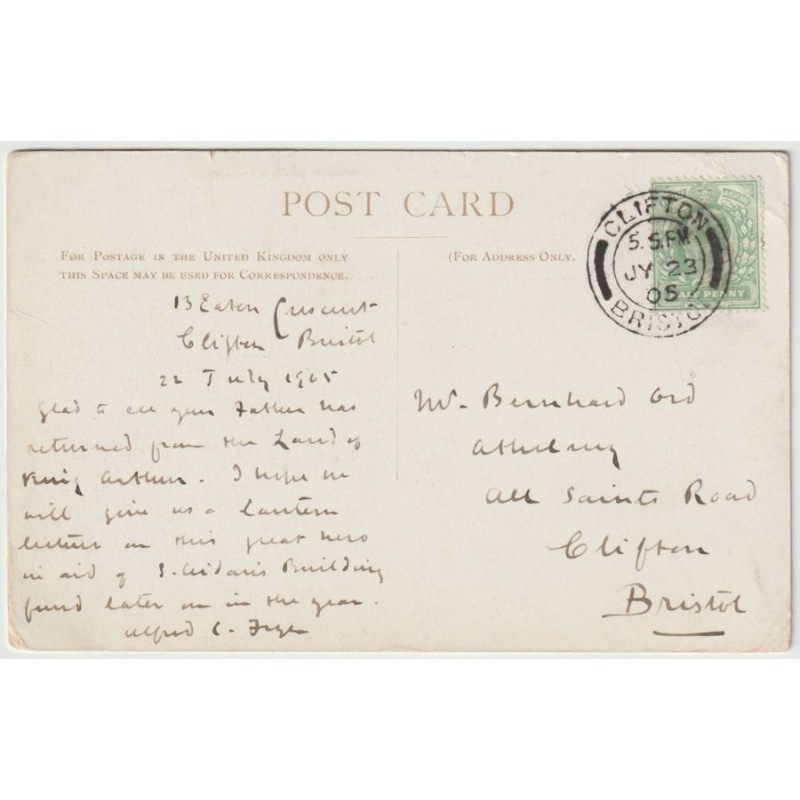 POST CARD
FOR POSTAGE IN THE UNITED KINGDOM ONLY
THIS SPACE MAY BE USED FOR CORRESPONDENCE.
(FOR ADDRESS ONLY.
CLIFTON
5.5.PM
JY 23
05
BRISTO
HALF PENNY
13 Eaton Crescent
Clifton Bristol
22 July 1905
glad to see your Father has
returned from the Land of
King Arthur. I hope he
will give us a lantern
lecture on this great hero
in aid of S. Aidan's Building
fund later on in the year.
Alfred C. Fryer
Mr. Bernhard Ord
Athelney
All Saints Road
Clifton
Bristol